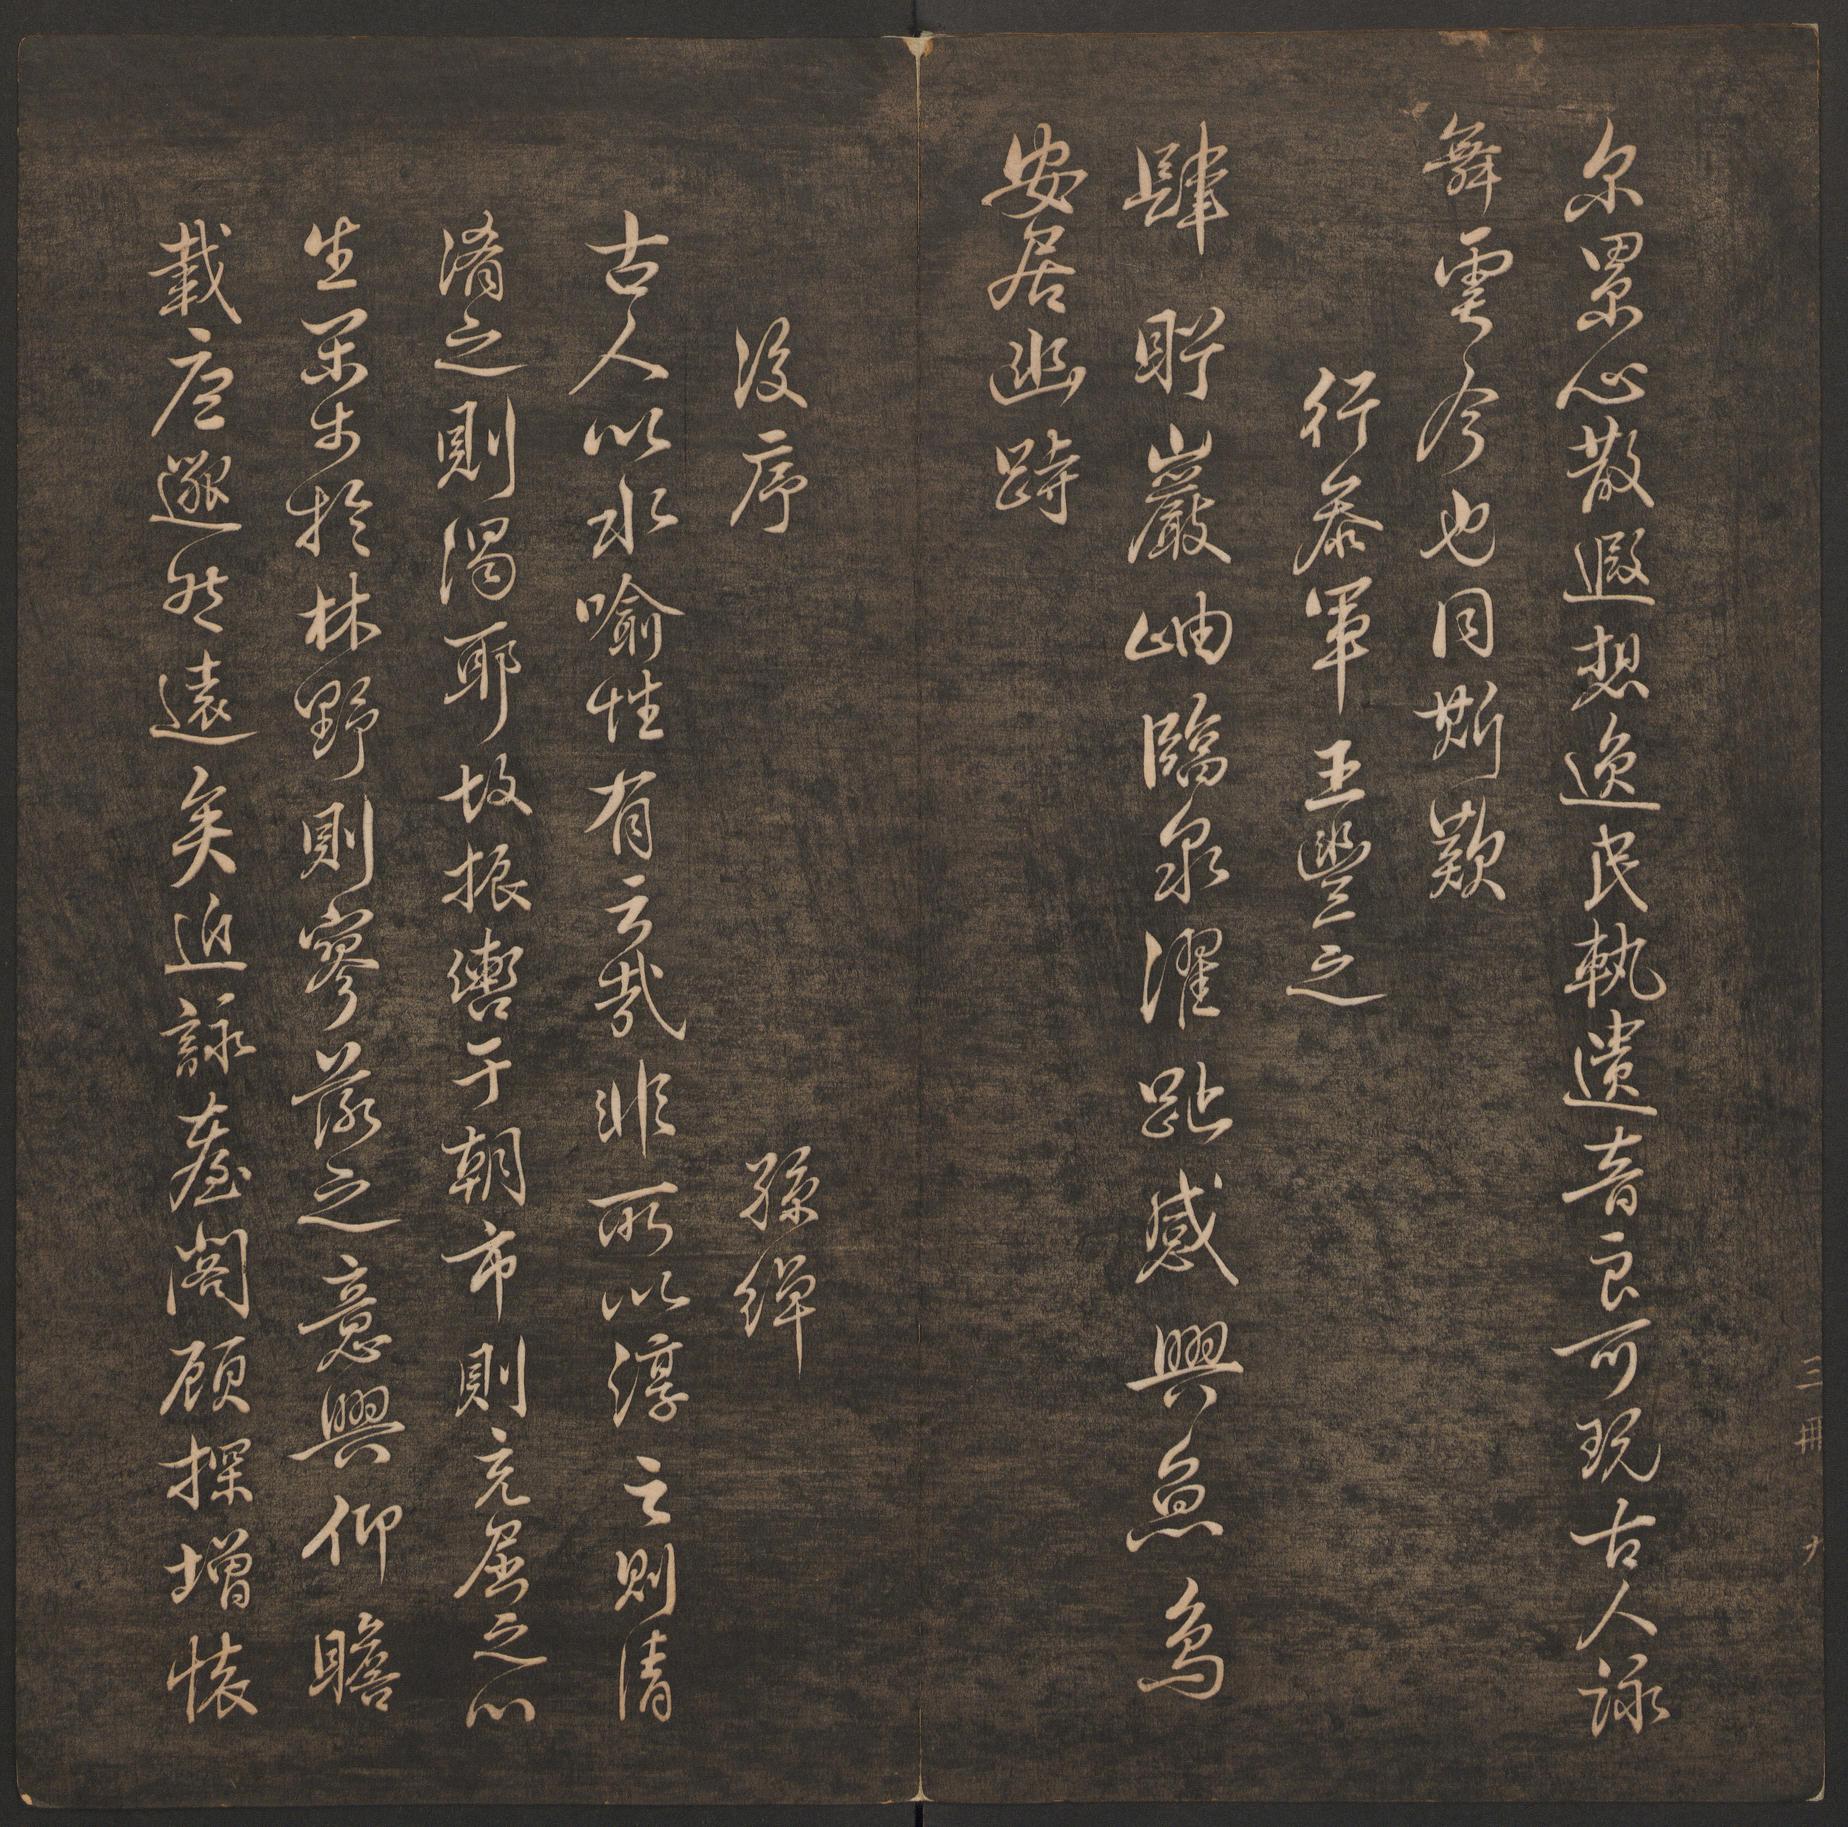 尔累心散遐想逸民軌遺音良可玩古人詠
舞雩今也同斯歎
行叅軍王豐之
肆眄巖岫臨泉濯趾感興魚鳥
安居幽跱
後序 孫綽
古人以水喻性有云哉非所以淳之則清
淆之則濁耶故振轡于朝市則充屈之心
生閑步於林野則寥落之意興仰瞻
羲唐邈然遠矣近詠臺閣顧探增懷
三冊